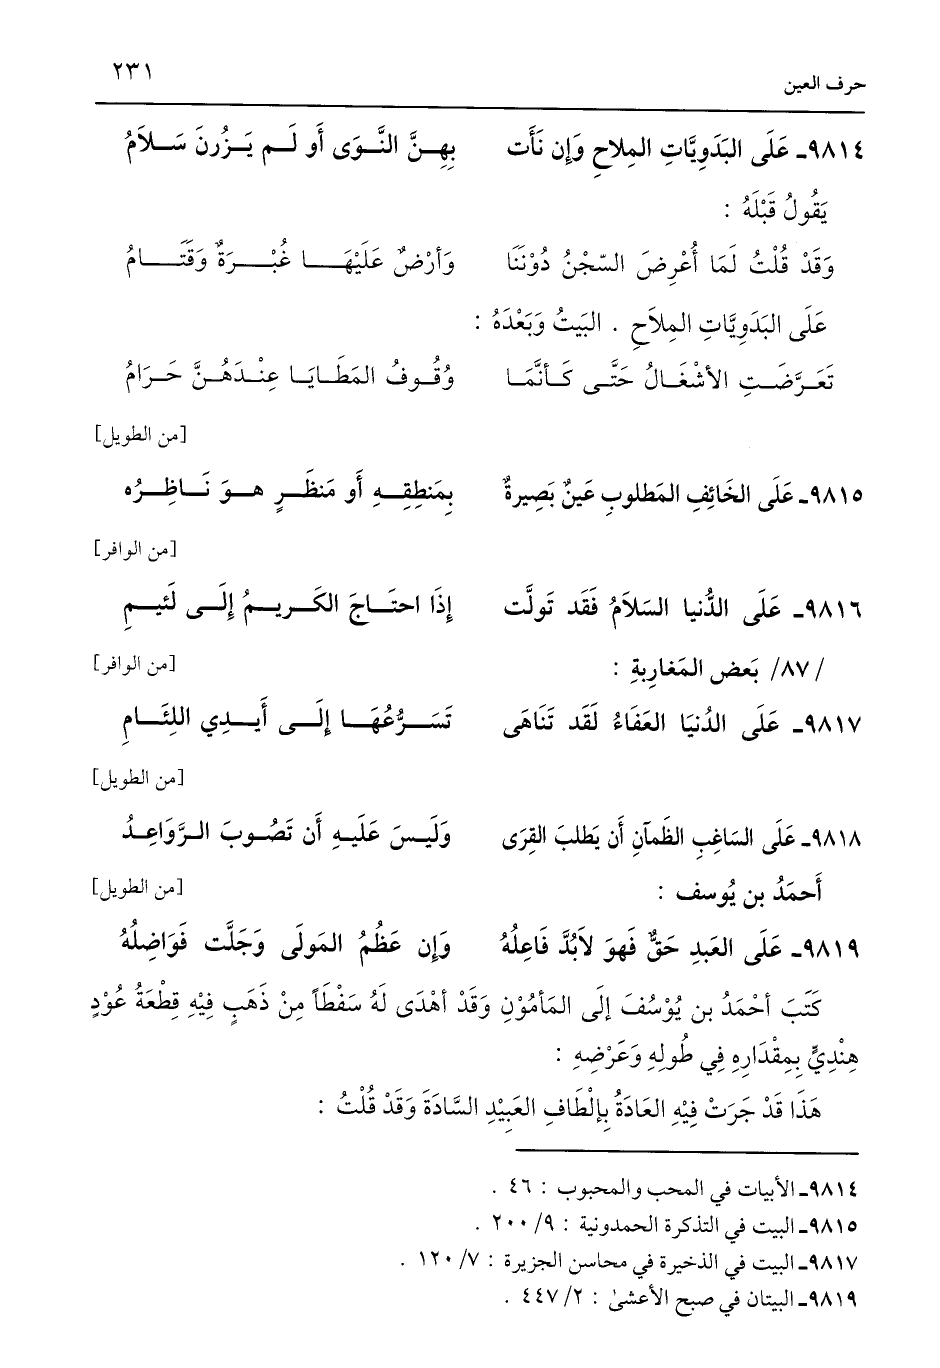 حرف العين ٢٣١
٩٨١٤ـ عَلَى البَدَوِيَّاتِ المِلاَحِ وَإِن نَأَت بِهِـنَّ النَّـوَى أَو لَـم يَـزُرنَ سَـلاَمُ
يَقُولُ قَبْلَهُ :
وَقَدْ قُلْتُ لَمَا أُعْرِضَ السّجْنُ دُوْنَنَا وَأرْضٌ عَلَيْهَـا غُبْـرَةٌ وَقَتَـامُ
عَلَى البَدَوِيَّاتِ المِلاَحِ . البَيتُ وَبَعْدَهُ :
تَعَرَّضَـتِ الأشْغَـالُ حَتَّـى كَـأنَّمَـا وُقُـوفُ المَطَـايَـا عِنْـدَهُـنَّ حَـرَامُ
[من الطويل]
٩٨١٥ـ عَلَى الخَائِفِ المَطلوبِ عَينٌ بَصِيرةٌ بِمَنطِقِـهِ أَو مَنظَـرٍ هـوَ نَـاظِـرُه
[من الوافر]
٩٨١٦ـ عَلَى الدُّنيا السَلاَمُ فَقَد تَولَّت إِذَا احتَـاجَ الكَـريـمُ إِلَـى لَئيـمِ
/ ٨٧/ بَعض المَغارِبةِ : [من الوافر]
٩٨١٧ـ عَلَى الدُنيَا العَفَاءُ لَقَد تَنَاهَى تَسَـرُّعُهَـا إِلَـى أَيـدِي اللِئَـامِ
[من الطويل]
٩٨١٨ـ عَلَى السَاغِبِ الظَمآنِ أَن يَطلبَ القِرَى وَلَيـسَ عَلَيـهِ أَن تَصُـوبَ الـرَّوَاعِـدُ
أَحمَدُ بن يُوسف : [من الطويل]
٩٨١٩ـ عَلَى العَبدِ حَقٌّ فَهوَ لاَبُدَّ فَاعِلُهُ وَإِن عَظُمُ المَولَى وَجَلَّت فَوَاضِلُهُ
كَتَبَ أحْمَدُ بن يُوْسُفَ إلَى المَأمُوْنِ وَقَدْ أهْدَى لَهُ سَفْطَاً مِنْ ذَهَبٍ فِيْهِ قِطْعَةُ عُوْدٍ
هِنْدِيٍّ بِمِقْدَارِهِ فِي طُولِهِ وَعَرْضِهِ :
هَذَا قَدْ جَرَتْ فِيْهِ العَادَةُ بِإلْطَافِ العَبِيْدِ السَّادَةَ وَقَدْ قُلْتُ :
٩٨١٤ـ الأبيات في المحب والمحبوب : ٤٦ .
٩٨١٥ـ البيت في التذكرة الحمدونية : ٩/ ٢٠٠ .
٩٨١٧ـ البيت في الذخيرة في محاسن الجزيرة : ٧/ ١٢٠ .
٩٨١٩ـ البيتان في صبح الأعشىٰ : ٢/ ٤٤٧ .